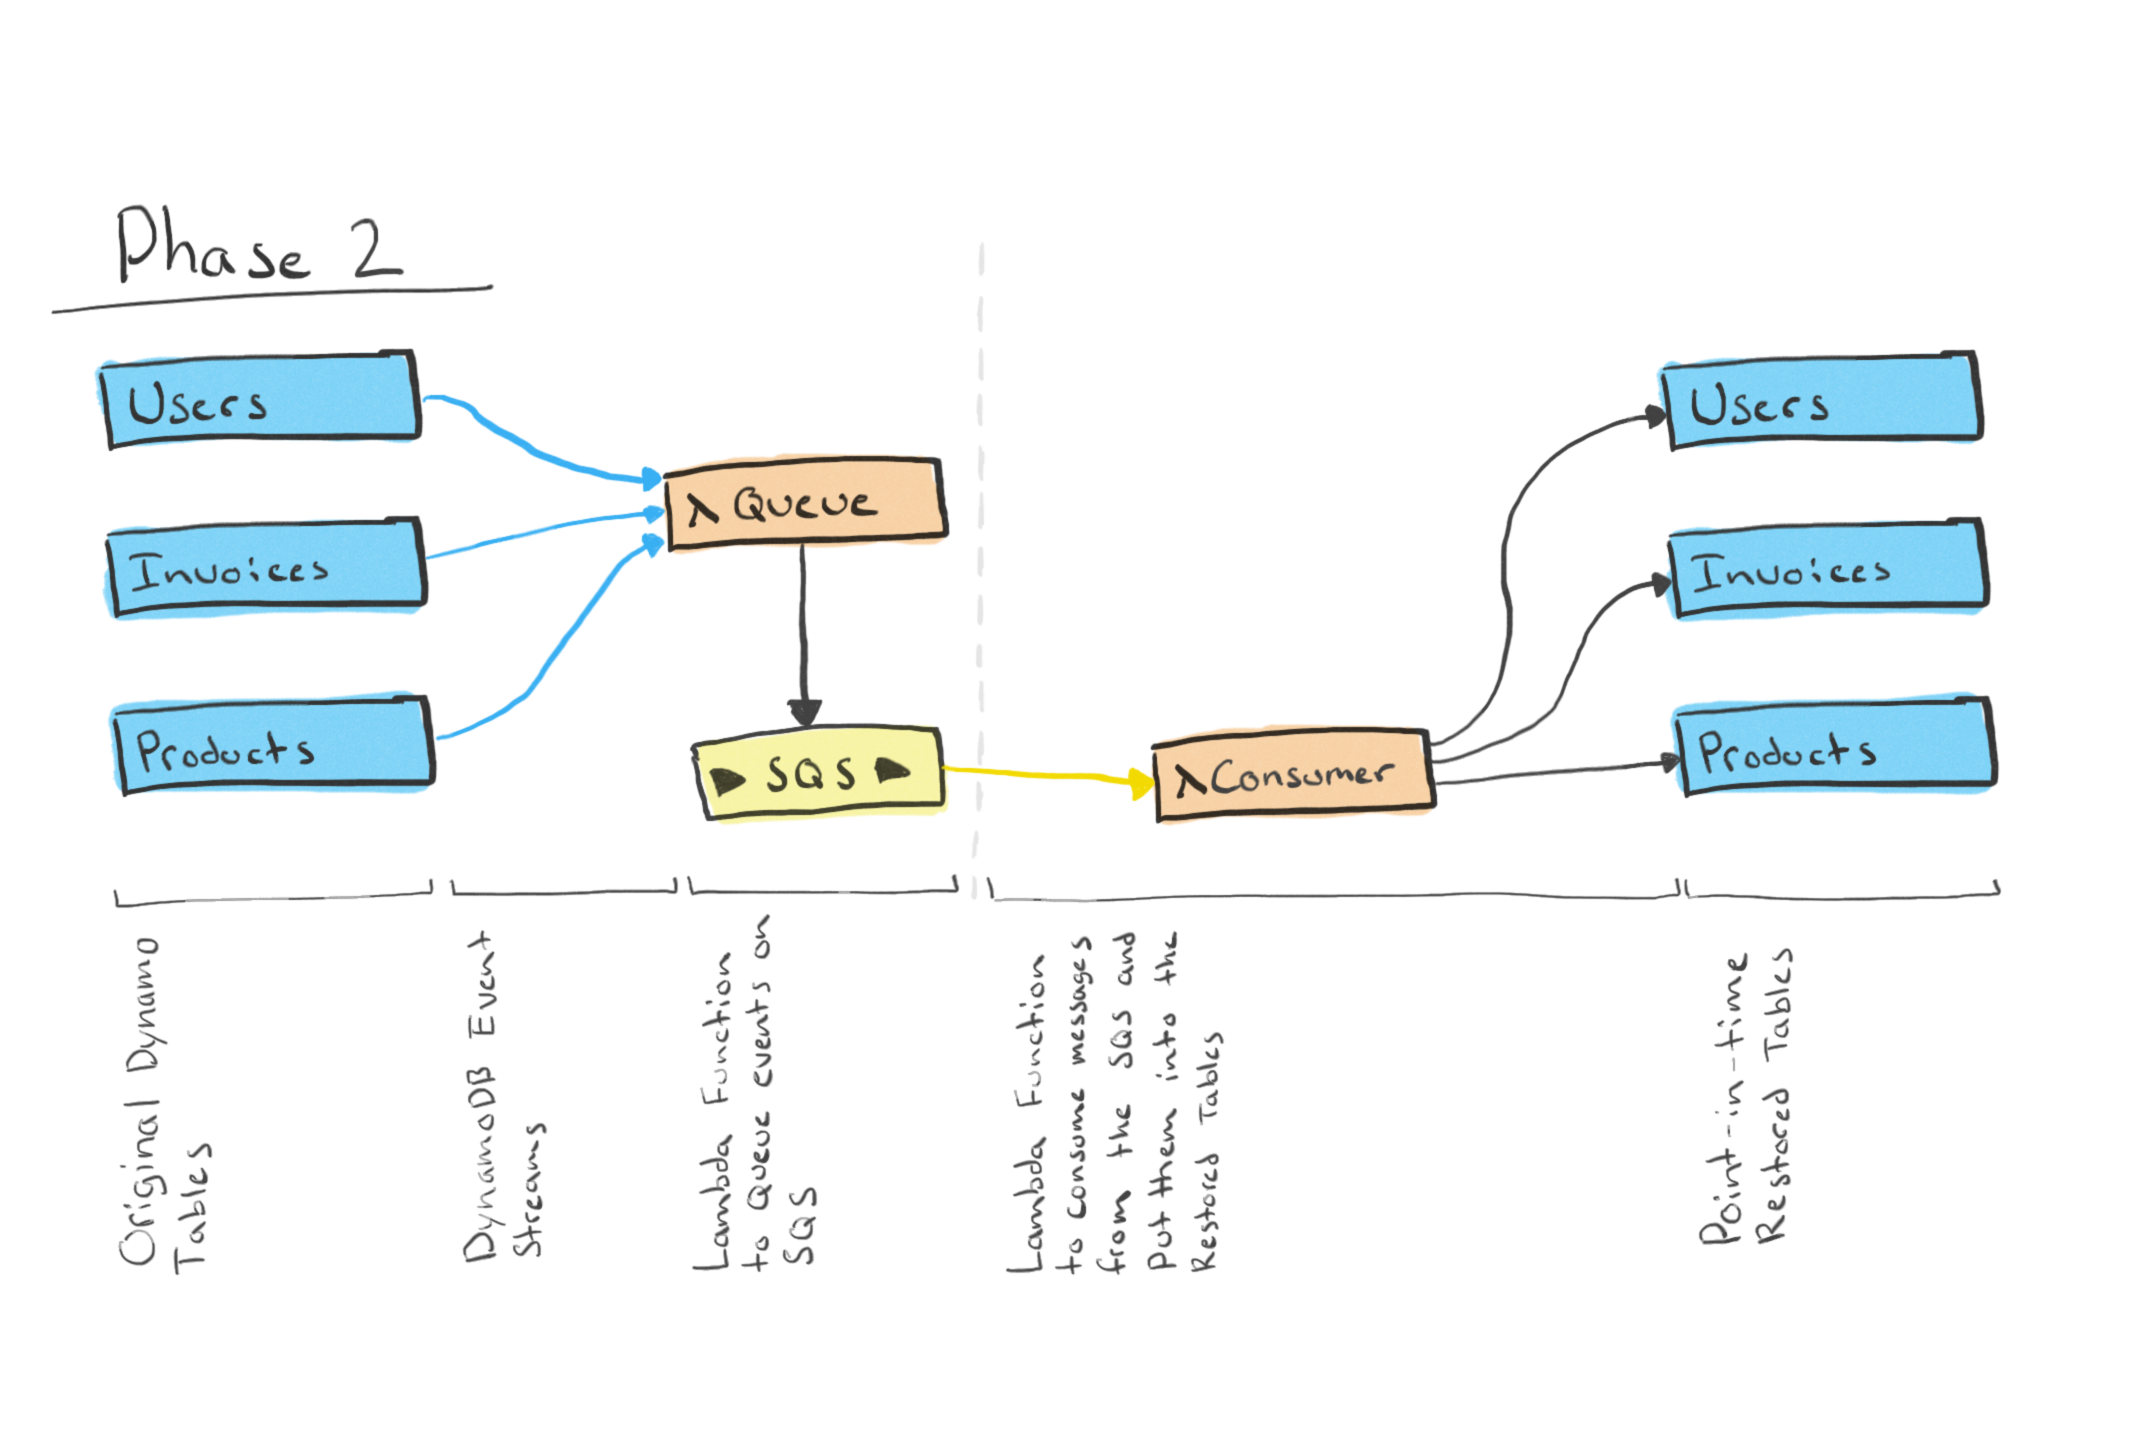 Phase 2
Users
Invoices
Products
λ Queue
SQS
λ Consumer
Users
Invoices
Products
Original Dynamo
Tables
DynamoDB Event
Streams
Lambda Function
to Queue events on
SQS
Lambda Function
to consume messages
from the SQS and
put them into the
Restored Tables
Point-in-time
Restored Tables